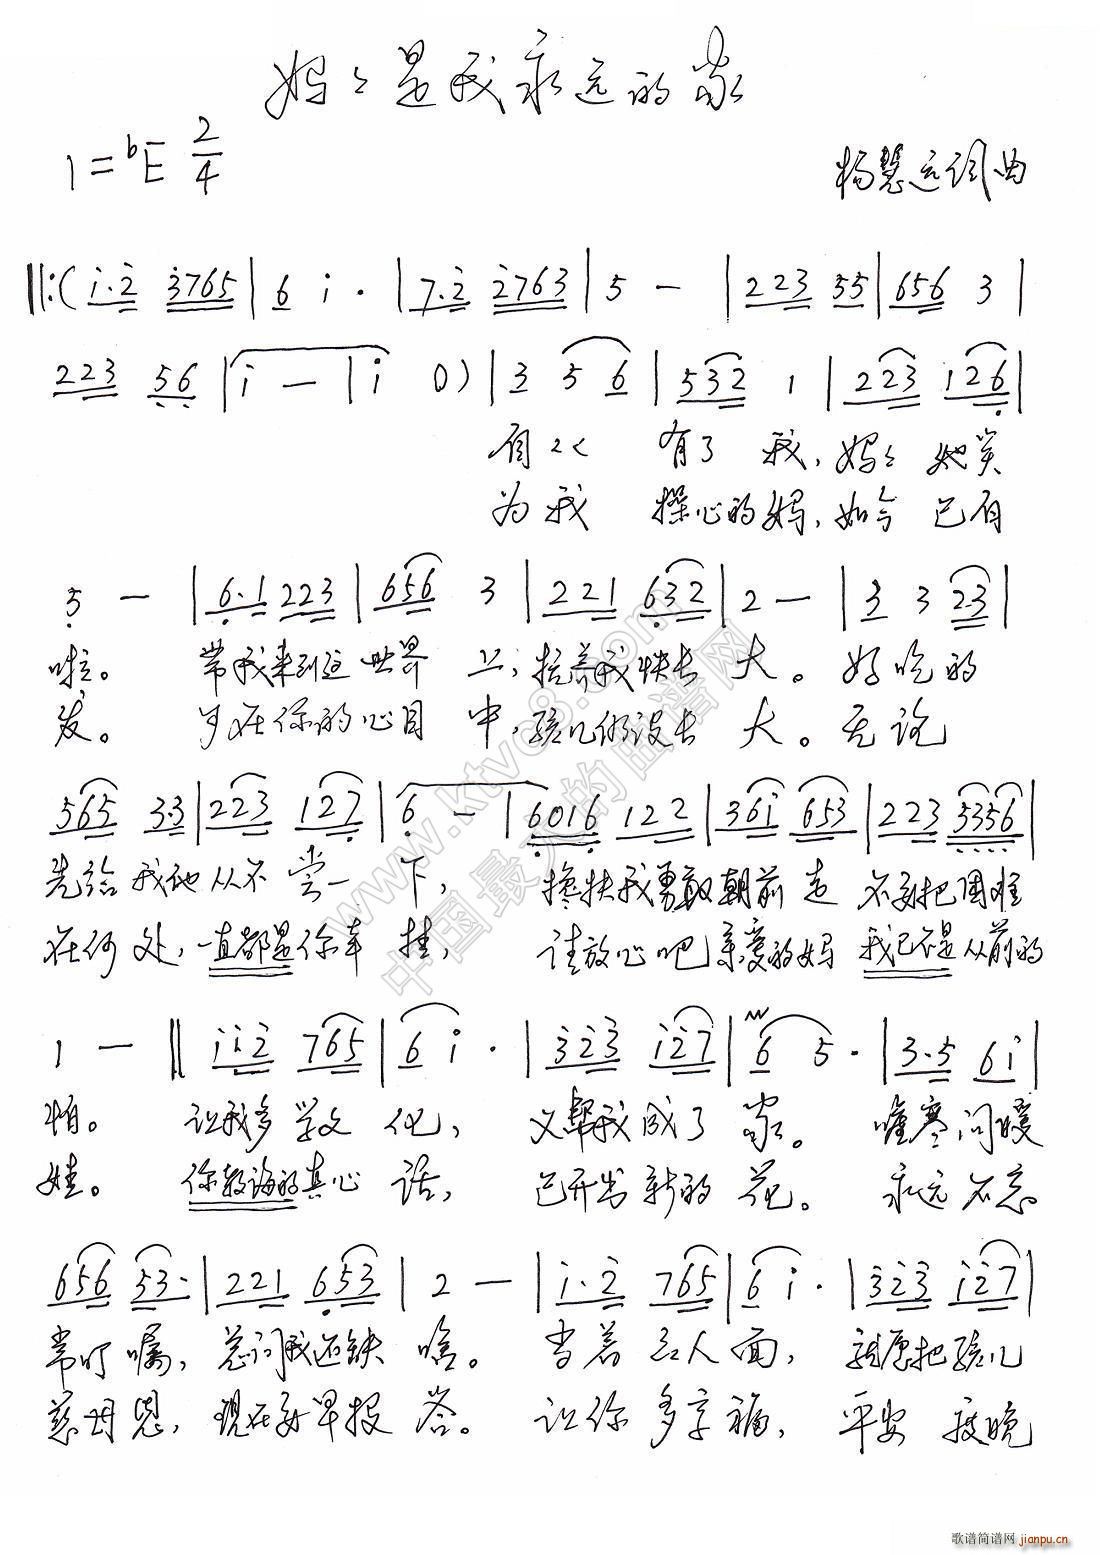 妈〻是我永远的家
1=♭E 2/4
杨慧远词曲
‖:( i·2 3765 | 6 i · | 7·2 2763 | 5 — | 223 55 | 656 3 |
223 56 | i — | i 0) | 3 5 6 | 532 1 | 223 126 |
自从 有了 我, 妈〻 她笑
为我 操心的妈, 如今 已有
5 — | 6·1 223 | 656 3 | 221 632 | 2 — | 3 3 23 |
啦。 带我来到这世界 上, 抚养我快长 大。 好吃的
发。 岁在你的心目 中, 孩儿仍没长 大。 无论
565 3·3 | 223 127 | 6 — | 6016 122 | 36i 653 | 223 5356 |
先给 我他从不 尝一 下, 搀扶我勇敢朝前 走 不要把困难
在何 处, 一直都是你牵 挂, 请放心吧亲爱的妈 我已不是从前的
1 — ‖ ii2 765 | 6 i · | 323 i27 | 6 5 · | 3·5 6i |
怕。 让我多学文 化, 又帮我成了 家。 嘘寒问暖
娃。 你教诲的真心 话, 已开出新的 花。 永远不忘
656 53· | 221 653 | 2 — | i·2 765 | 6 i · | 323 i27 |
常叮 嘱, 总问我还缺 啥。 当着 众人 面, 就愿把孩儿
慈母 恩, 现在要早报 答。 让你 多享 福, 平安 度晚
www.ktvc8.com
中国最大的曲谱网
歌谱简谱网
jianpu.cn